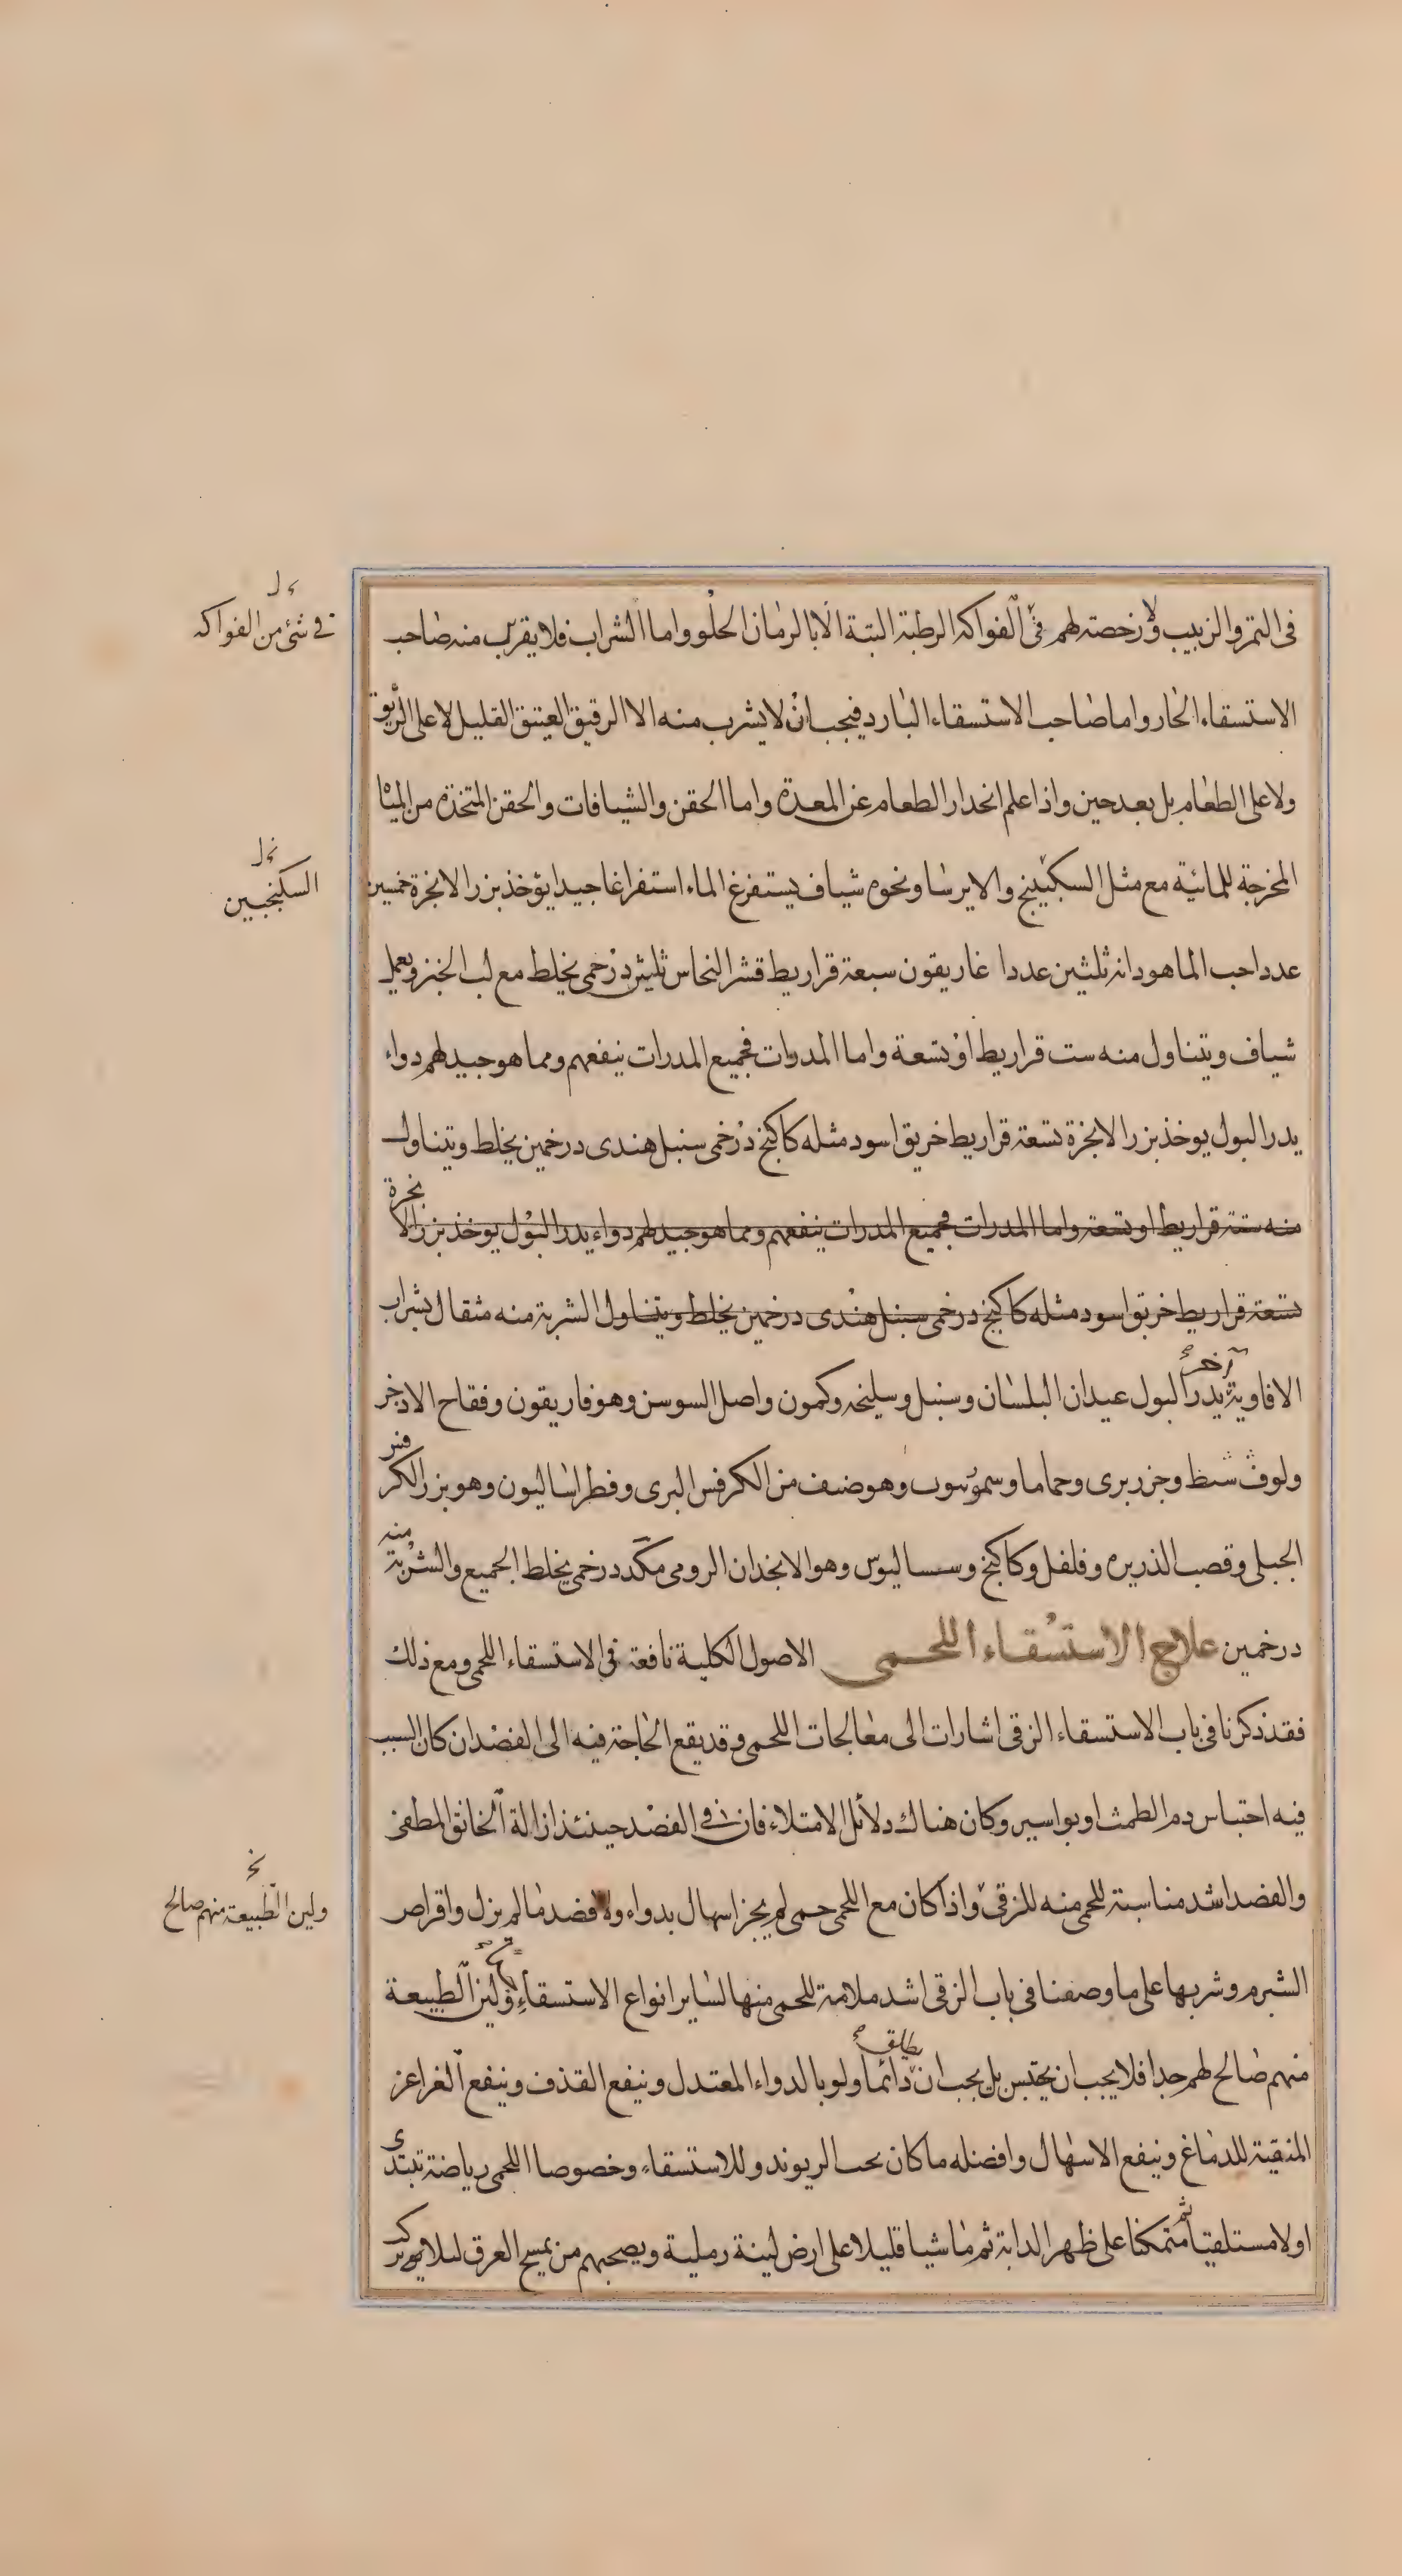 في شئ من الفواكه
في التمر والزبيب ولا رخصة لهم في الفواكه الرطبة البتة الا بالرمان الحلو واما الشراب فلا يقرب منه صاحب
الاستسقاء الحار واما صاحب الاستسقاء البارد فيجب ان لا يشرب منه الا الرقيق العتيق القليل لا على الريق
ولا على الطعام بل بعد حين واذا علم انحدار الطعام عن المعدة واما الحقن والشيافات والحقن المتخذه من المياه
المخرجة للمائية مع مثل السكبينج والايرسا ونحوه شياف يستفرغ الماء استفراغا جيدا يؤخذ بزر الانجرة خمسين
السكنجبين
عددا حب الماهودانه ثلثين عددا غاريقون سبعة قراريط قشر النحاس ثلثين درخمى يخلط مع لب الخبز ويعمل
شياف ويتناول منه ست قراريط او تسعة واما المدرات فجميع المدرات ينفعهم ومما هو جيد لهم دواء
يدر البول يوخذ بزر الانجرة تسعة قراريط خربق اسود مثله كاكنج درخمى سنبل هندى درخمين يخلط ويتناول
منه ستة قراريط او تسعة واما المدرات فجميع المدرات ينفعهم ومما هو جيد لهم دواء يدر البول يوخذ بزر الانجرة
تسعة قراريط خربق اسود مثله كاكنج درخمى سنبل هندى درخمين يخلط ويتناول الشربة منه مثقال بشراب
الافاوية آخر يدر البول عيدان البلسان وسنبل وسليخه وكمون واصل السوسن وهوفاريقون وفقاح الاذخر
ولوف شظ وجزر برى وحماما وسمونيون وهو صنف من الكرفس البرى وفطراساليون وهو بزر الكرفس
الجبلى وقصب الذريره وفلفل وكاكنج وسساليوس وهو الانجذان الرومى مكد درخمى يخلط الجميع والشربة منه
درخمين علاج الاستسقاء اللحمى الاصول الكلية نافعة فى الاستسقاء اللحمى ومع ذلك
فقد ذكرنا فى باب الاستسقاء الزقى اشارات الى معالجات اللحمى وقد يقع الحاجة فيه الى الفصد ان كان السبب
فيه احتباس دم الطمث او بواسير وكان هناك دلائل الامتلاء فان فى الفصد حينئذ ازالة الخانق المطفى
والفصد اشد مناسبة للحمى منه للزقى واذا كان مع اللحمى حمى لم يجز اسهال بدواء ولا فصد ما لم يزل واقراص
ولين الطبيعة منهم صالح
الشبرم وشربها على ما وصفنا فى باب الزقى اشد ملامة للحمى منها لساير انواع الاستسقاء ولين الطبيعة
منهم صالح لهم جدا فلا يجب ان يحتبس بل يجب ان يطلق دائما ولو بالدواء المعتدل وينفع القذف وينفع الغراغر
المنقية للدماغ وينفع الاسهال وافضله ما كان بحب الريوند وللاستسقاء وخصوصا اللحمى رياضة تبتدئ
اولا مستلقيا ثم متمكنا على ظهر الدابة ثم ماشيا قليلا على ارض لينة رملية ويصحبهم من يمسح العرق لئلا